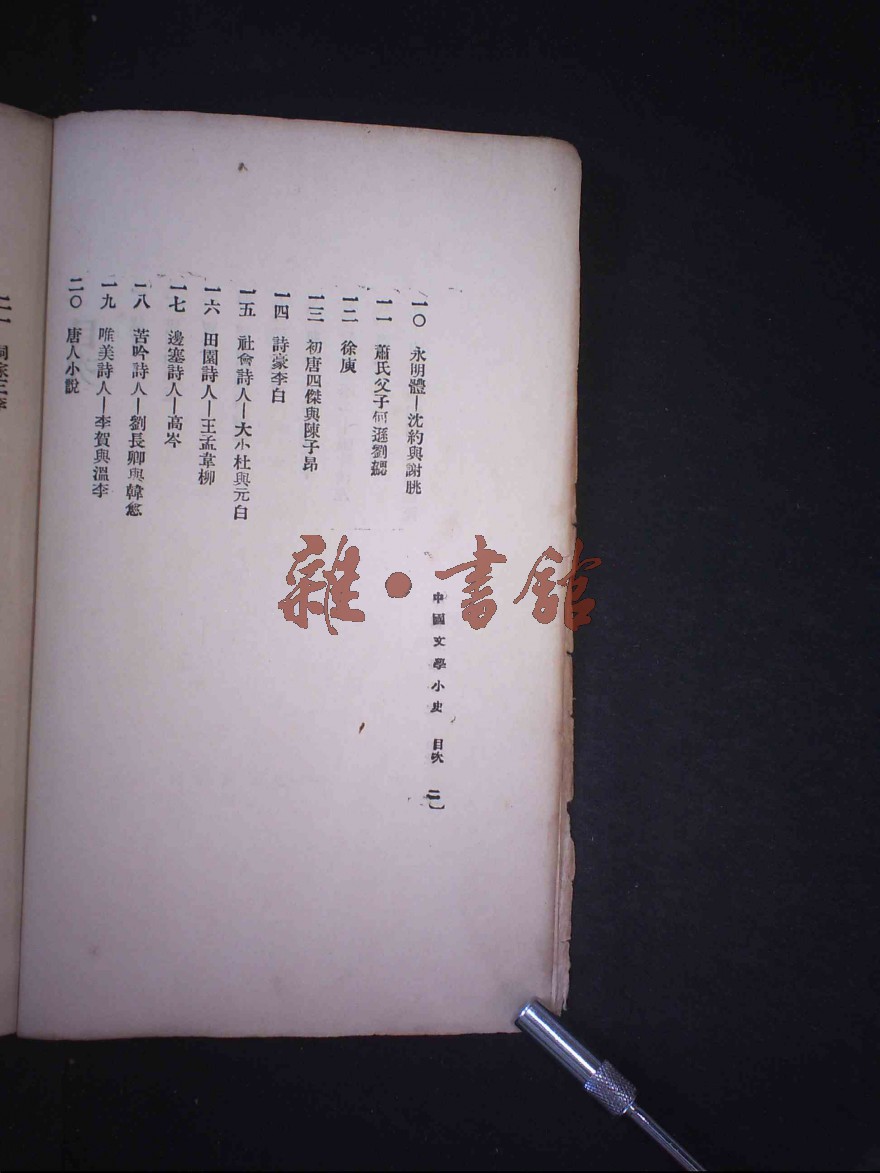 一〇 永明體—沈約與謝朓
一一 蕭氏父子何遜劉勰
一二 徐庾
一三 初唐四傑與陳子昂
一四 詩豪李白
一五 社會詩人—大小杜與元白
一六 田園詩人—王孟韋柳
一七 邊塞詩人—高岑
一八 苦吟詩人—劉長卿與韓愈
一九 唯美詩人—李賀與溫李
二〇 唐人小說
中國文學小史 目次 二
二一 詞家三李
雜·書館